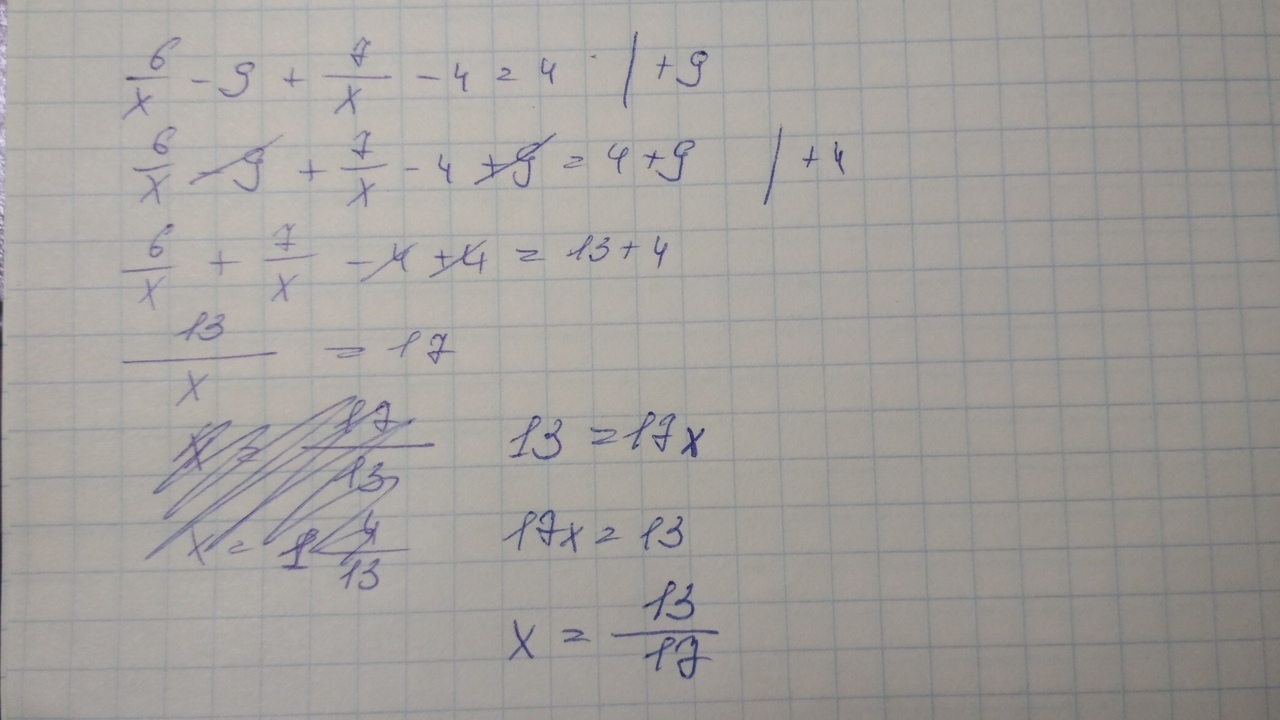 6/x - 9 + 7/x - 4 = 4 | +9
6/x - 9 + 7/x - 4 + 9 = 4 + 9 | +4
6/x + 7/x - 4 + 4 = 13 + 4
13/x = 17
x = 17/13
x = 1 4/13
13 = 17x
17x = 13
x = 13/17